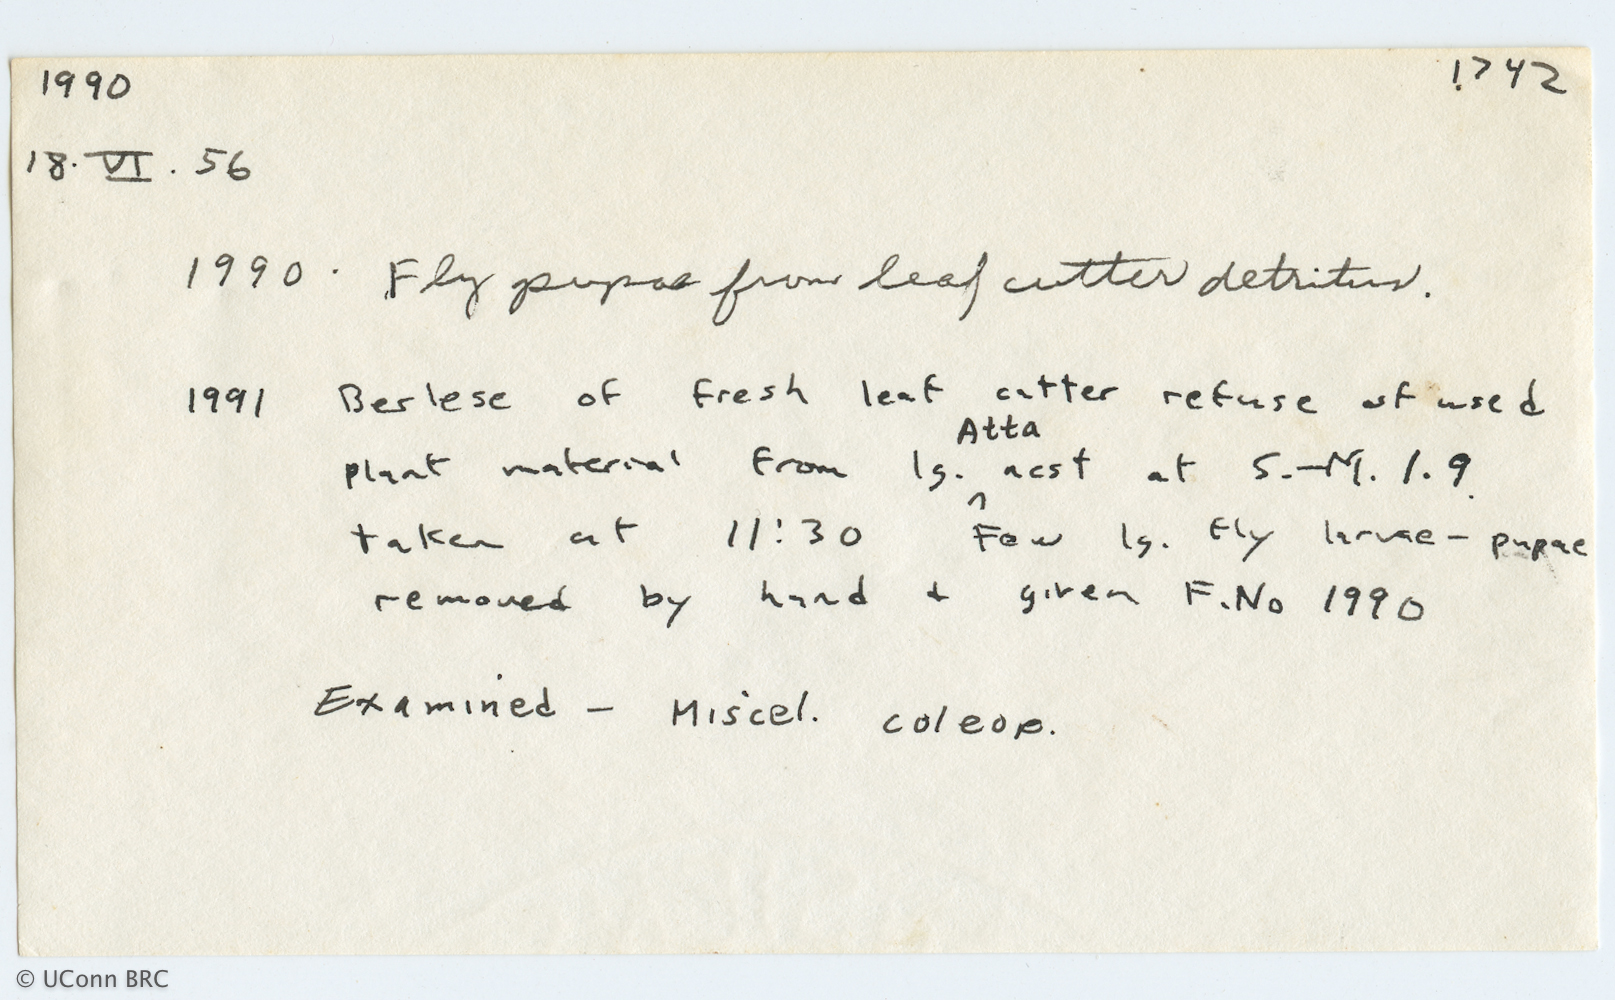 1990
1.742
18. VI. 56
1990. Fly pupae from leaf cutter detritus.
1991 Berlese of fresh leaf cutter refuse of used
Atta
plant material from lg. ^ nest at S.-M. 1.9.
taken at 11:30 Few lg. fly larvae - pupae
removed by hand + given F.No 1990
Examined - Miscel. coleop.
© UConn BRC